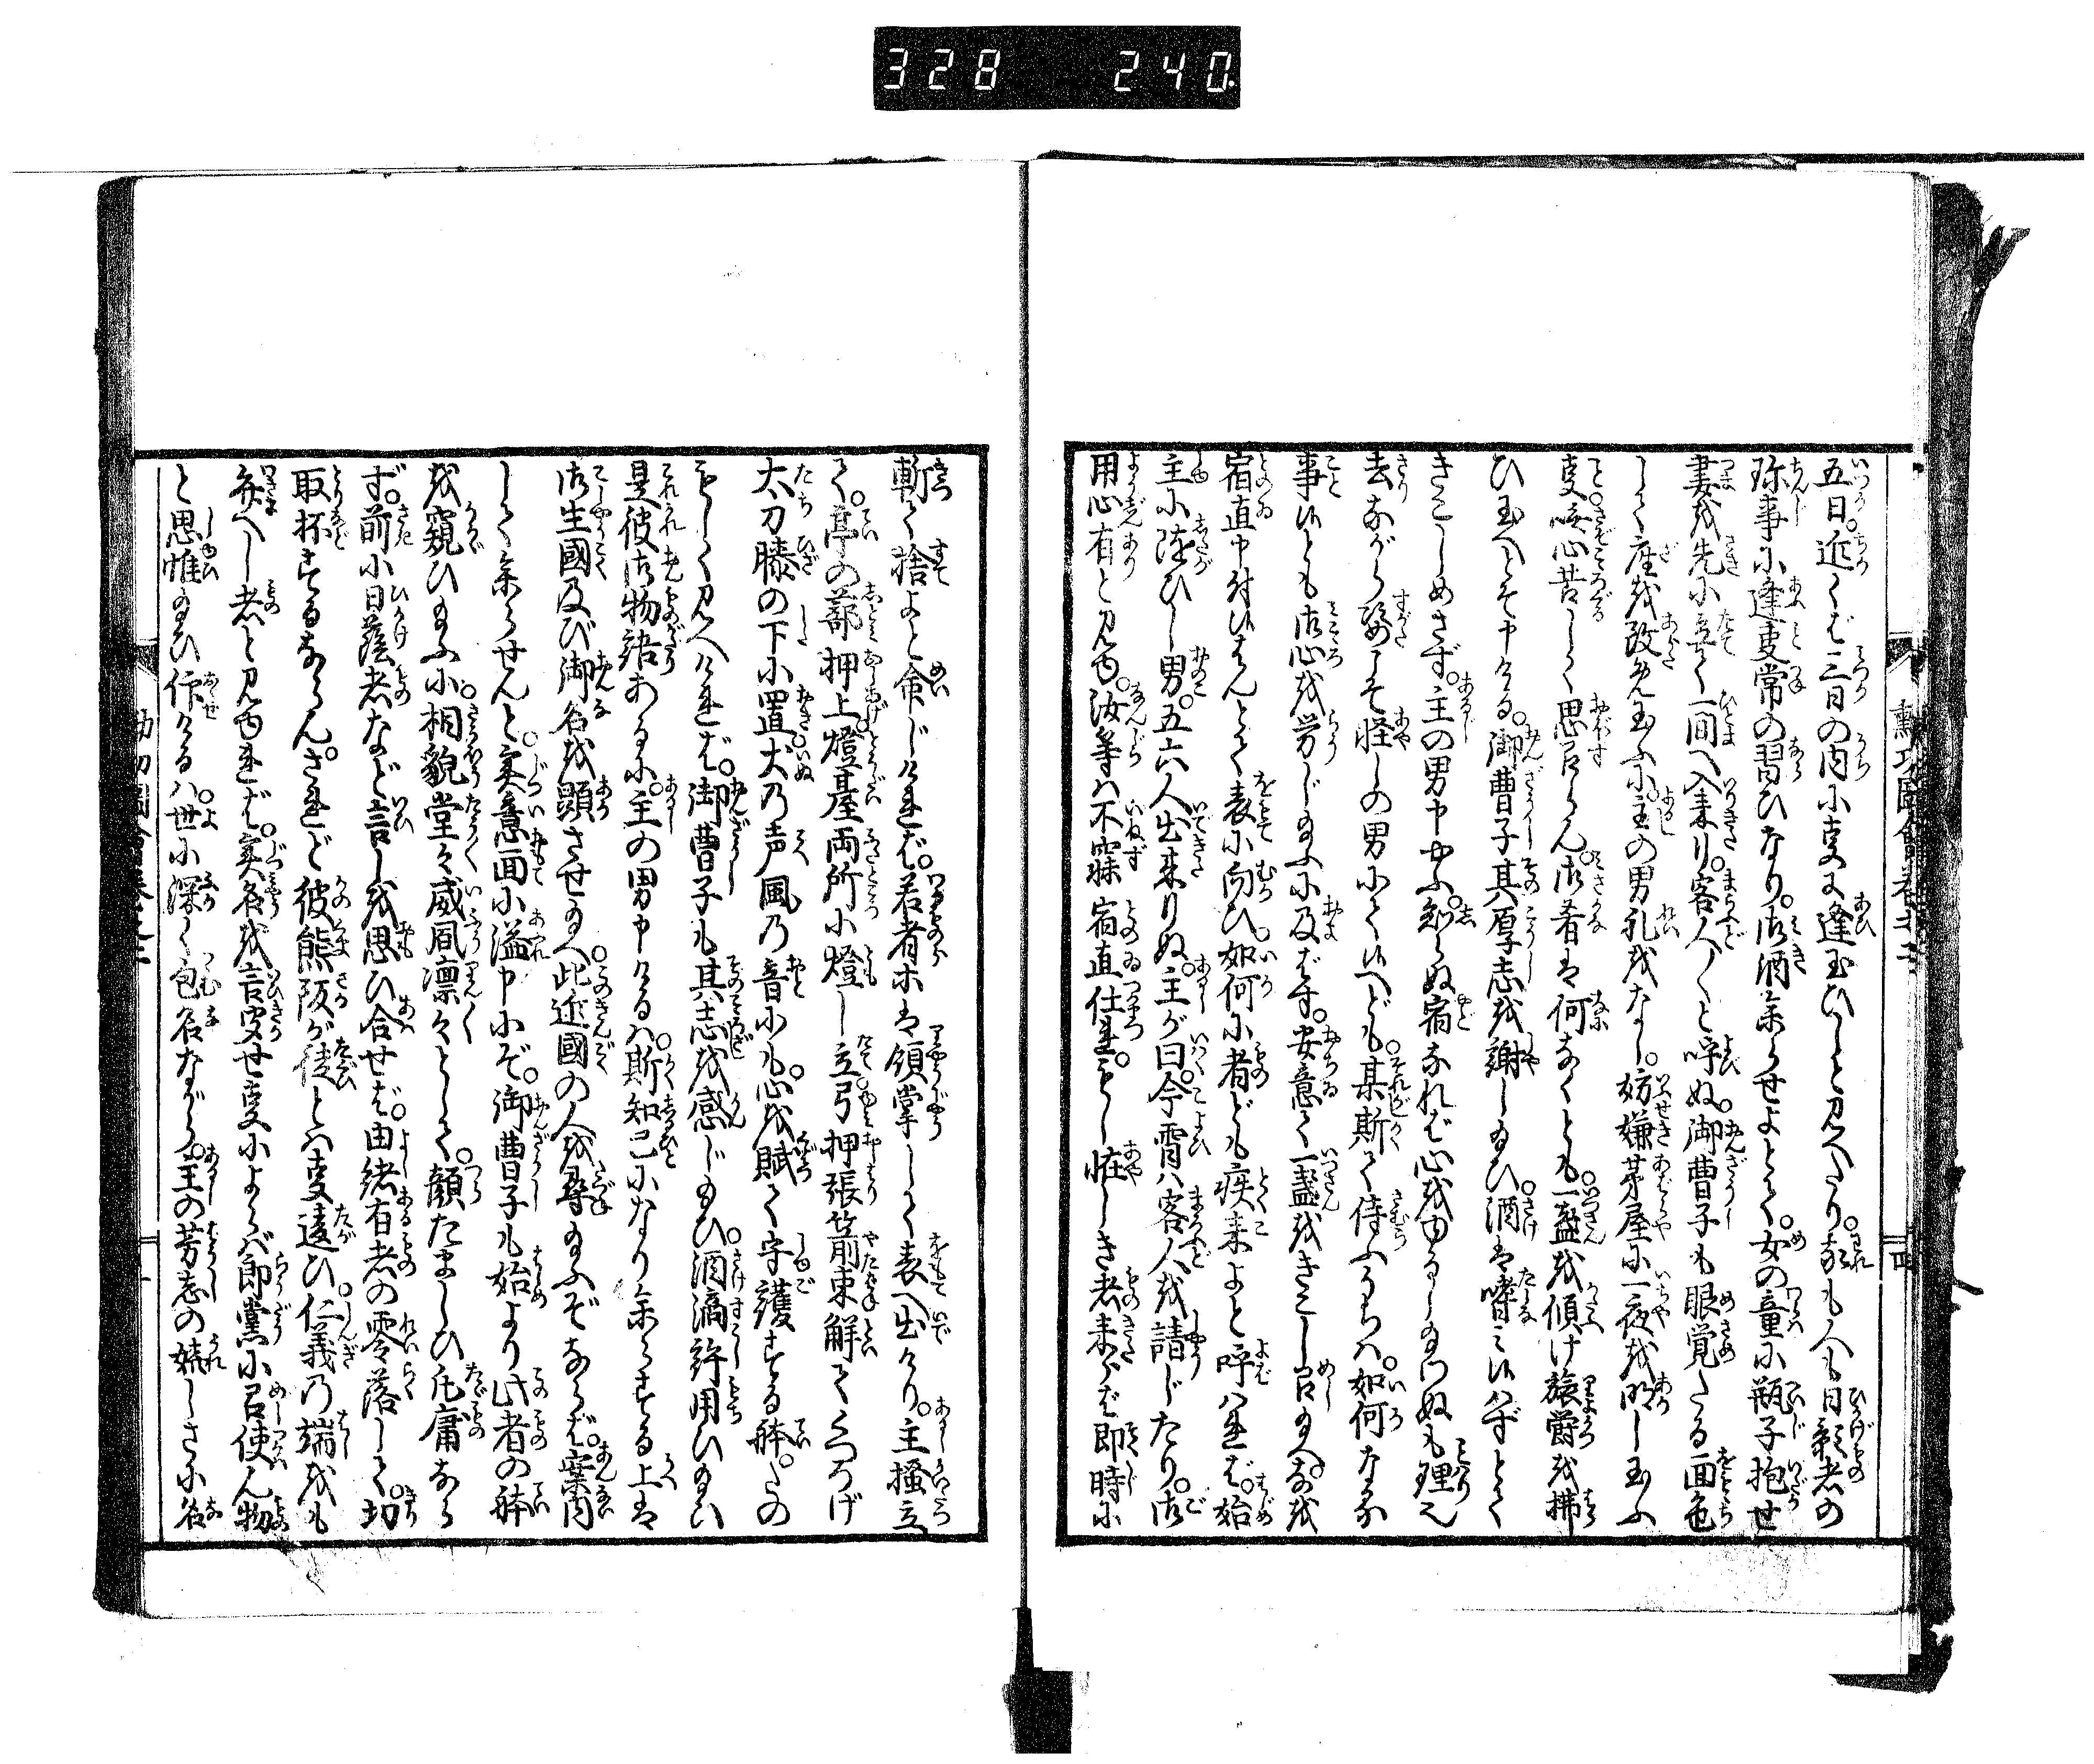 328 240.
五日。近くば三日の内に事に逢玉ひしと見へたり。我も人も日影者の
珍事に逢事常の習ひなり。御酒参らせよとて。女の童に瓶子抱せ
妻を先に立て一間へ入来り。客人〳〵と呼ぬ。御曹子も眼覚たる面色
して座を改め玉ふに。主の男礼をなし。妨嫌茅屋に一夜を明し玉ふ
事。嘸心苦しく思召らん。御肴は何なくとも。一盞を傾け旅欝を払
ひ玉へとぞ申ける。御曹子其厚志を謝し給ひ。酒は嗜み候はずとて
きこしめさず。主の男申やふ。知らぬ宿なれば心をゆるし給はぬも理也
去ながら姿こそ怪しの男にて候へども。某斯て侍ふうちは。如何なる
事候とも御心を労じ給ふに及ばず。安意て一盞をきこし召給へ。なを
宿直申付候はんとて表に向ひ。如何に者ども疾来よと呼はれば。始
主に随ひし男。五六人出来りぬ。主が曰。今霄は客人を請じたり。御
用心有と見ゆ。汝等は不寐宿直仕れ。もし怪しき者来らば即時に
斬て捨よと命じければ。若者ホは領掌して表へ出けり。主掻立
て。亭の蔀押上燈台両所に燈し立。弓押張箭束解てくつろげ
太刀膝の下に置。犬の声風の音にも。心を賦て守護する体。たの
もしく見へければ。御曹子も其志を感じ給ひ。酒滴許用ひ給ひ
是彼御物語あるに。主の男申けるは。斯知己になり参らする上は
御生国及び御名を顕させ給へ。此近国の人を尋給ふぞならば。案内
して参らせんと。実意面に溢申にぞ。御曹子も始より此者の体
を窺ひ給ふに。相貌堂々威風凛々として。顔たましひ凡庸なら
ず。前に日蔭者など言しを思ひ合せば。由緒有者の零落して。切
取杯するならん。されど彼熊阪が徒とは事違ひ。仁義の端をも
弁へし者と見ゆれば。実名を言聞せ事によらば郎党に召使ん物
と思惟給ひ。仰けるは。世に深く包名ながら。主の芳志の嬉しさに名